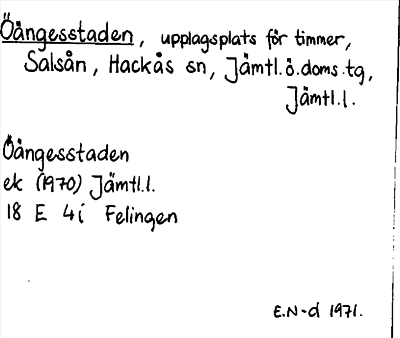 Öångesstaden, upplagsplats för timmer,
Salsån, Hackås sn, Jämtl.ö.doms.tg,
Jämtl.l.
Öångesstaden
ek (1970) Jämtl.l.
18 E 4i Felingen
E.N-d 1971.